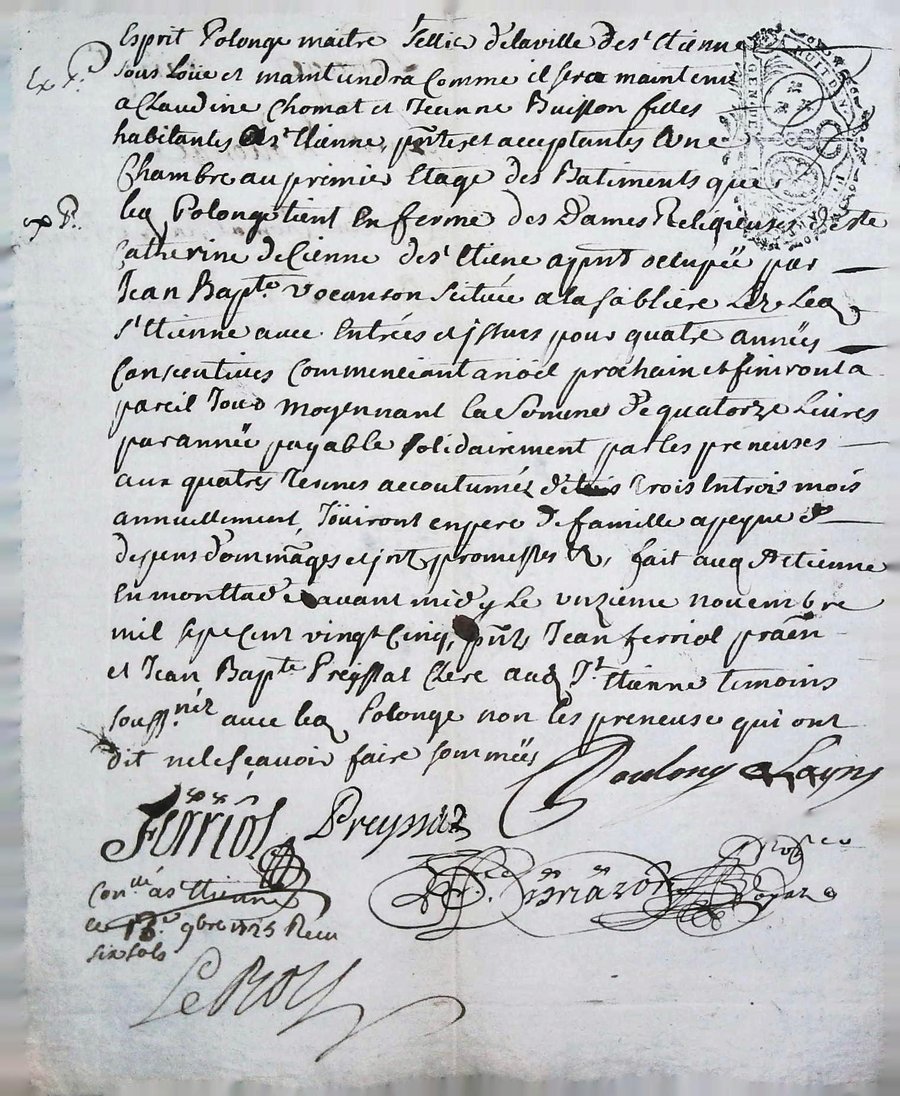 Esprit Polonge maitre Sellié de la ville de St Etienne
Sous Loüe et maintiendra Comme il sera maintenu
a Claudine Chomat et Jeanne Buisson filles
habitantes a St Etienne, pntes et acceptantes Une
Chambre au premier Etage des Batiments que
led Polonge tient En ferme des Dames Religieuses de Ste
Catherine de Cienne de St Etiene a pnt occupëe par
Jean Bapte Vocanson Scituée a la Sabliere Lez Led
St Etienne avec Entrées et issues pour quatre annëes
Consecutives Commenceant a noël prochain et finiront a
pareil Jour moyennant la Somme de quatorze Livres
par annëe payable Solidairement par les preneuses
aux quatres termes accoutumés de trois En trois mois
annuellement, Joüiront en pere de famille a peyne de
despens dommages et jnt, promesses &, fait aud St Etienne
En mon avant midy Le unzieme novembre
mil sept Cent vingt Cinq, pnts Jean ferriol
et Jean Bapte Preyssat Clerc aud St Etienne temoins
soussnés avec led Polonge non les preneuse qui ont
dit ne le sçavoir faire sommëes
Ferriol Preynat
Conlle a St Etienne
ce 9bre 1725 Receu
six sols
LeRoy